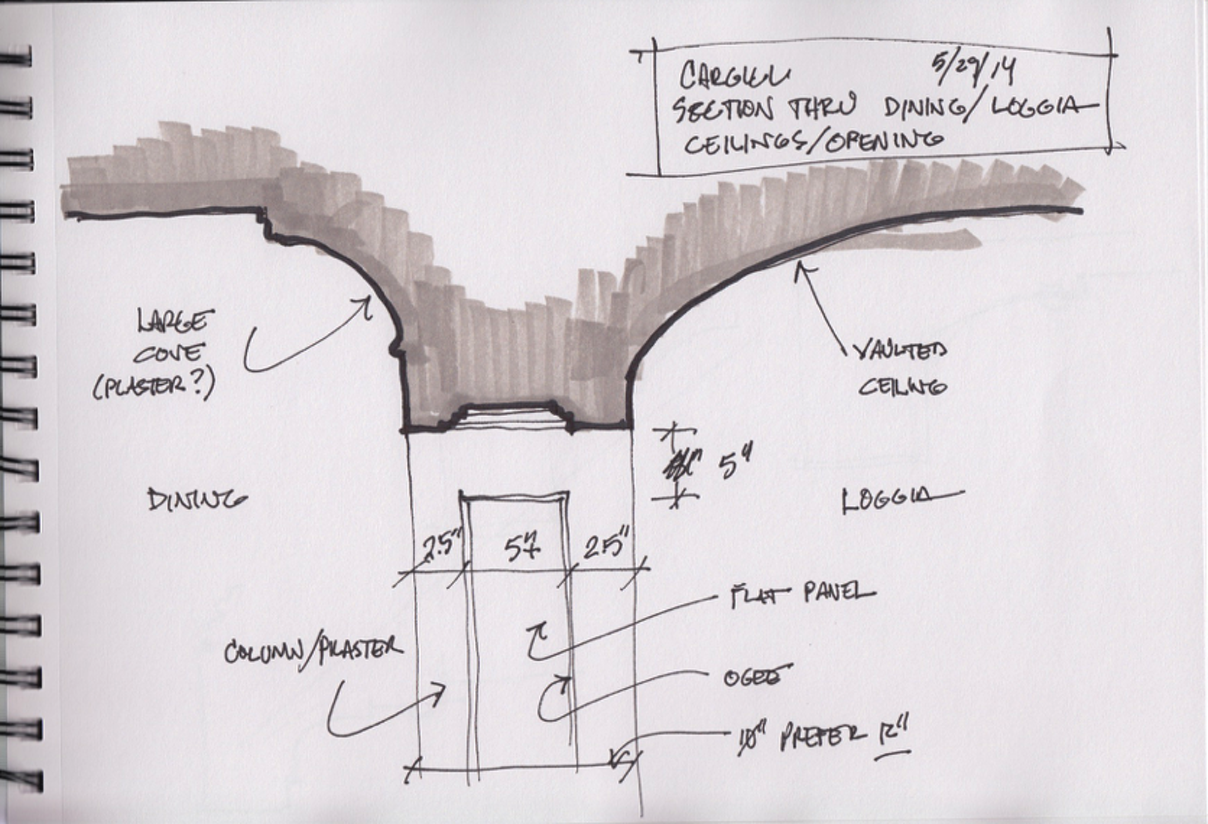 5/29/14
SECTION THRU DINING/LOGGIA
CEILINGS/OPENING
LARGE
COVE
(PLASTER?)
VAULTED
CEILING
5"
DINING
LOGGIA
2.5" 5" 2.5"
FLAT PANEL
COLUMN/PILASTER
OGEE
10" PREFER 12"